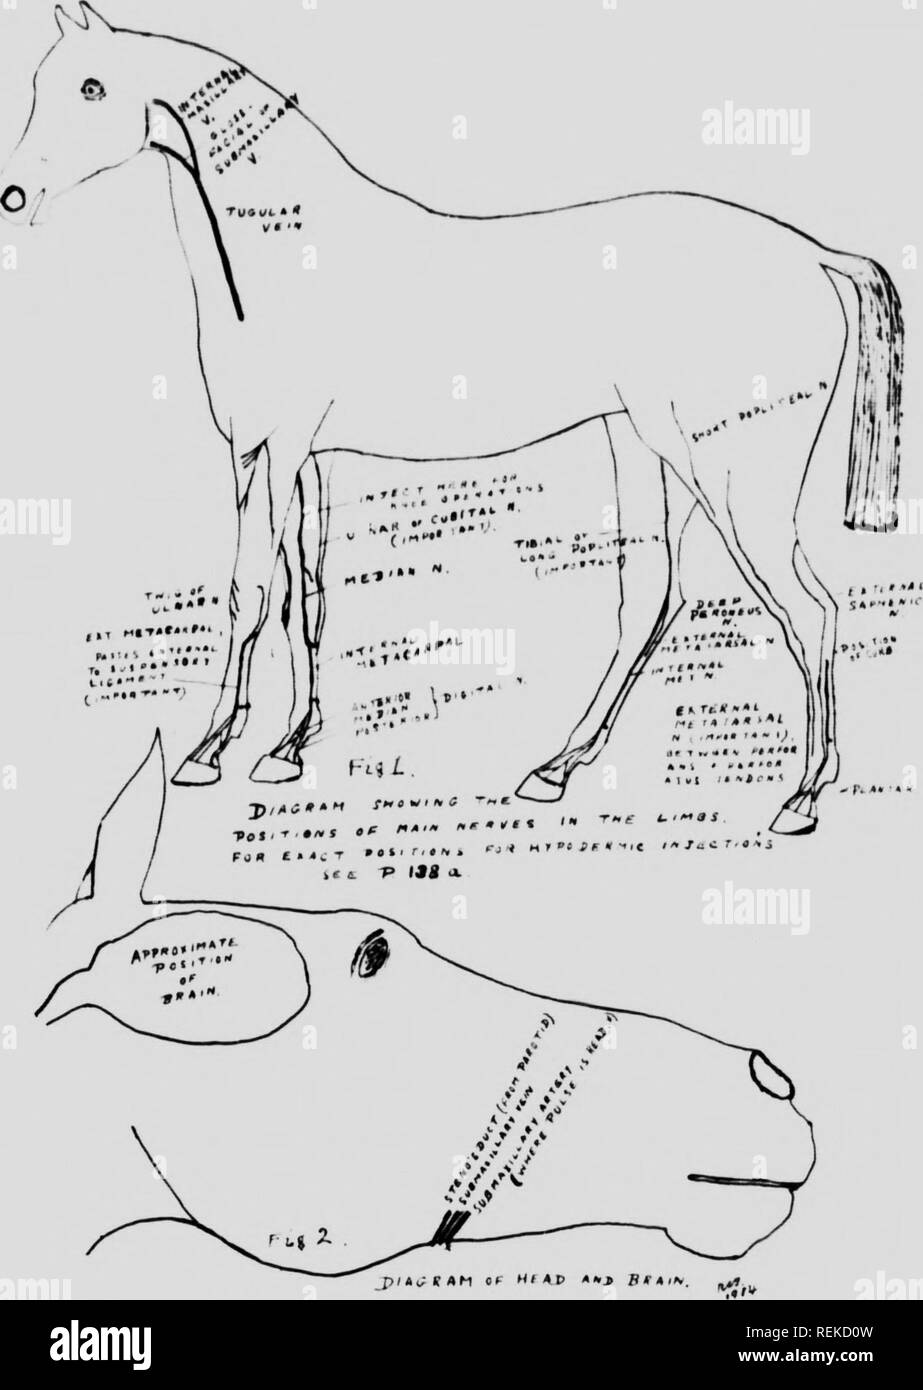 INTERNAL
MAXILLARY
V.
GLOSS-
FACIAL OR
SUBMAXILLARY
V
TUGULAR
VEIN
SHORT POPLITEAL N
INJECT HERE FOR
KNEE OPERATIONS
U NAR OR CUBITAL N.
(IMPORTANT).
MEDIAN N.
TIBIAL OR
LONG POPLITEAL N.
(IMPORTANT)
TWIG OF
ULNAR N
EXT METACARPAL,
PASSES EXTERNAL
TO SUSPENSORY
LIGAMENT
(IMPORTANT)
INTERNAL
METACARPAL
ANTERIOR
MEDIAN
POSTERIOR
} DIGITAL N.
DEEP
PERONEUS
N.
EXTERNAL
METATARSAL N
INTERNAL
MET N.
EXTERNAL
METATARSAL
N (IMPORTANT),
BETWEEN PERFOR
ANS & PERFOR
ATUS TENDONS
EXTERNAL
SAPHENIC
N.
POSITION
OF CURB.
PLANTAR
Fig 1.
DIAGRAM SHOWING THE
POSITIONS OF MAIN NERVES IN THE LIMBS.
FOR EXACT POSITIONS FOR HYPODERMIC INJECTIONS
SEE P 138 a
APPROXIMATE
POSITION
OF
BRAIN.
STENO'S DUCT (FROM PAROTID)
SUBMAXILLARY VEIN
SUBMAXILLARY ARTERY
(WHERE PULSE IS HEARD)
Fig 2.
DIAGRAM OF HEAD AND BRAIN.
1914
alamy
alamy
alamy
REKD0W
www.alamy.com